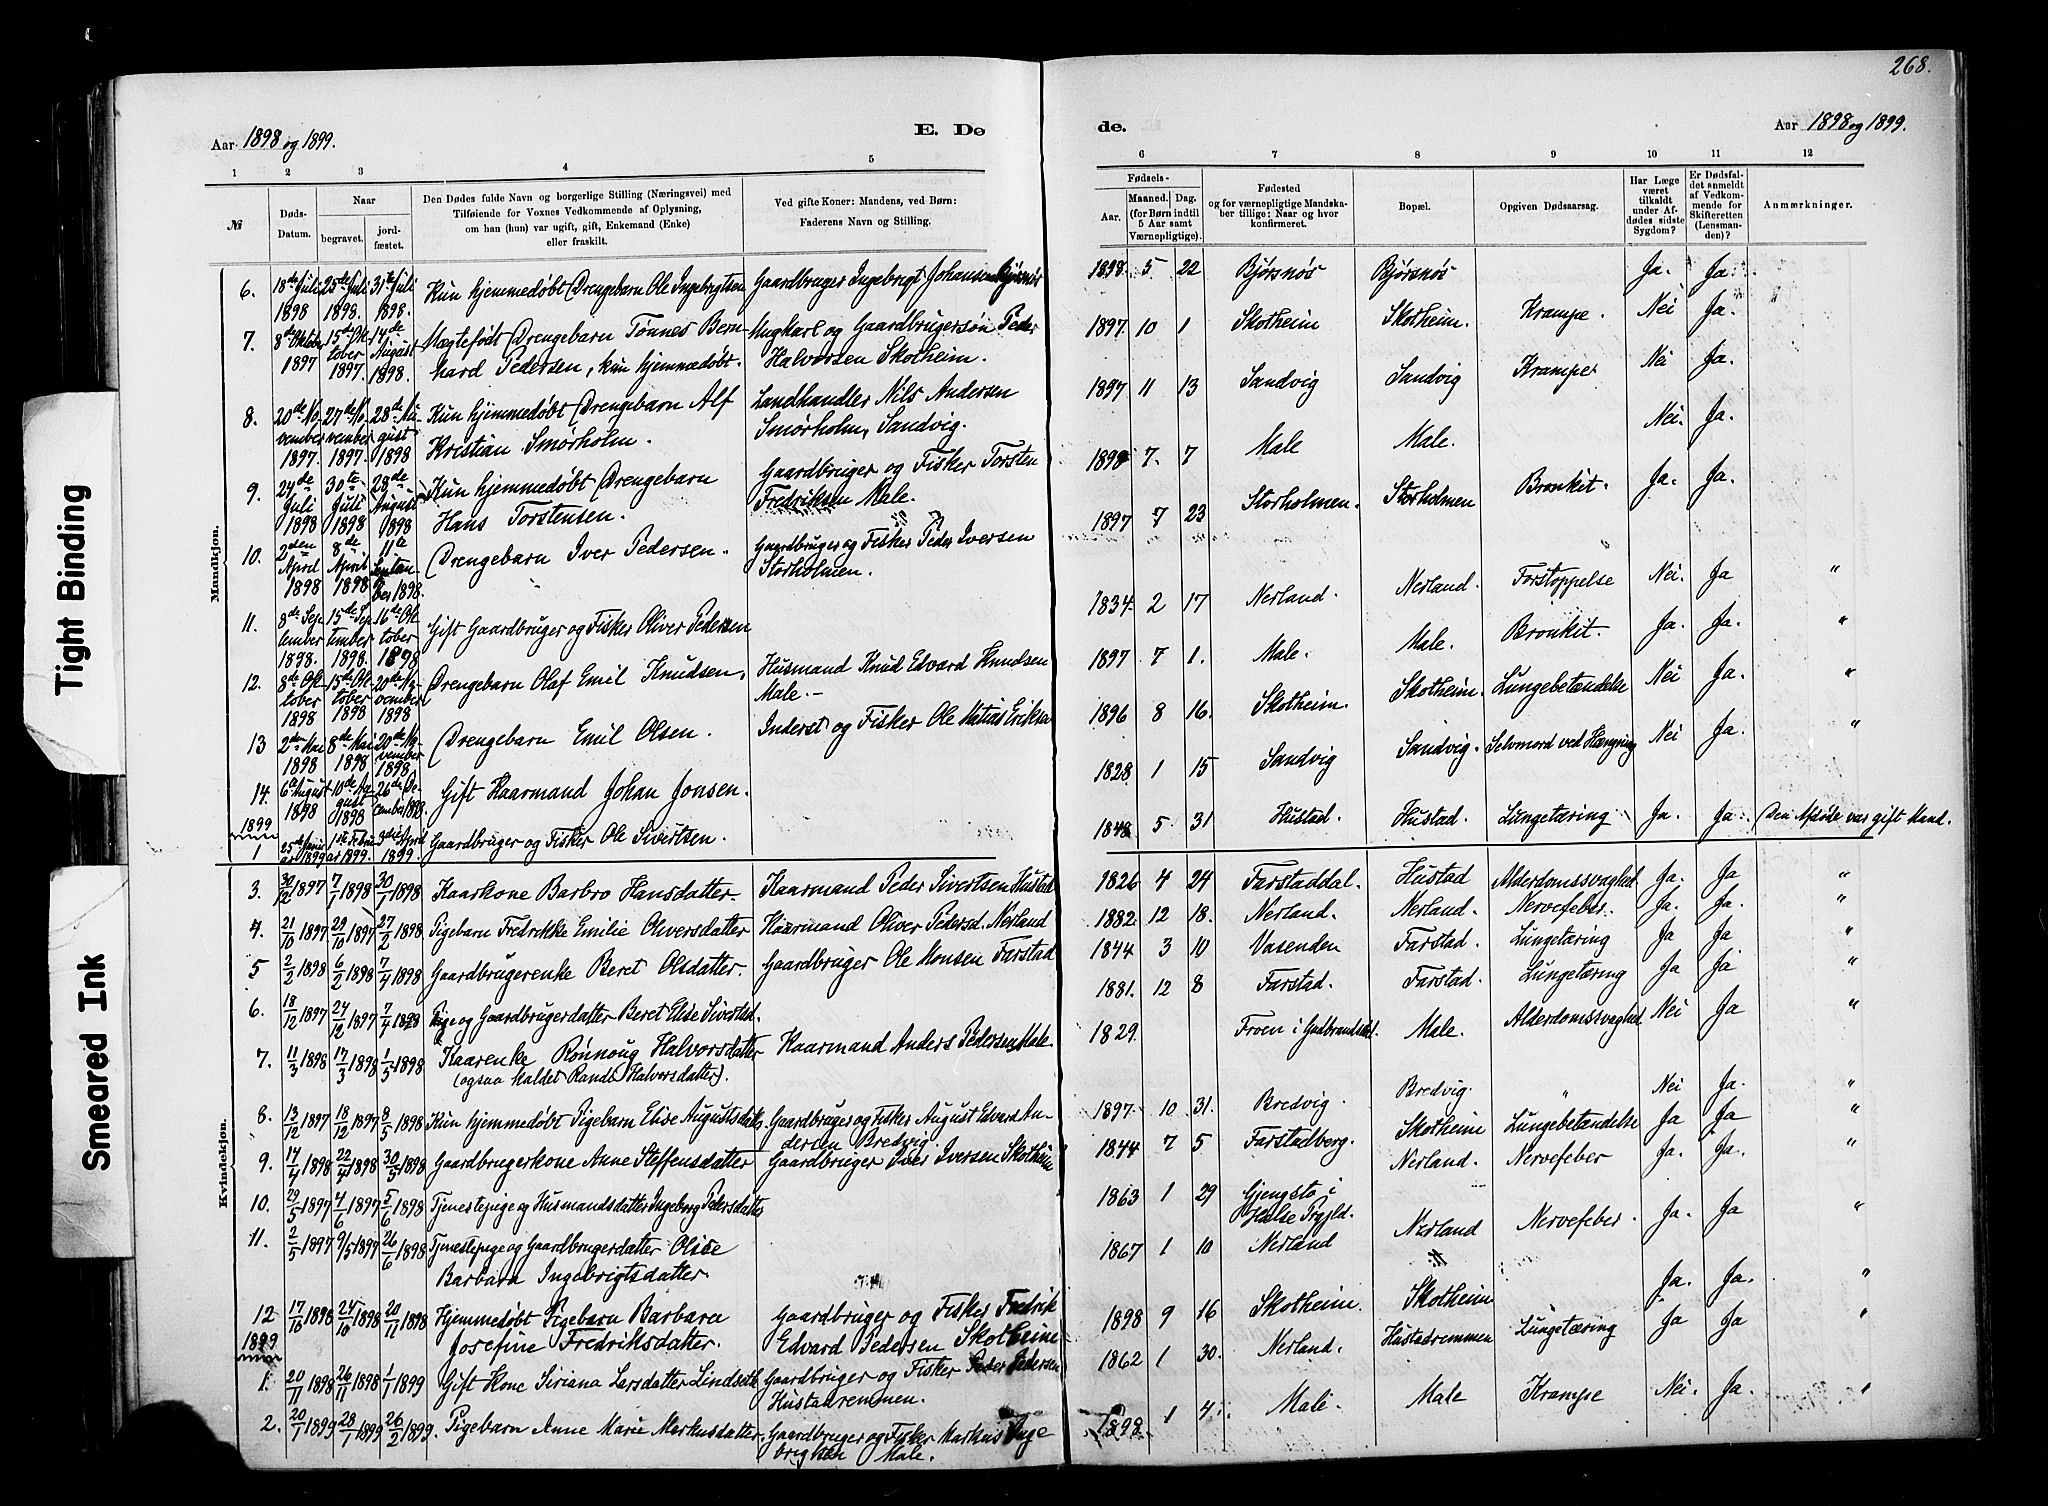 268.
Aar 1898 og 1899.
E. Dø
de.
Aar 1898 og 1899.
1 2 3 4 5
6 7 8 9 10 11 12
№
Døds-
Datum.
Naar
begravet.
jord-
fæstet.
Den Dødes fulde Navn og borgerlige Stilling (Næringsvei) med
Tilføiende for Voxnes Vedkommende af Oplysning,
om han (hun) var ugift, gift, Enkemand (Enke)
eller fraskilt.
Ved gifte Koner: Mandens, ved Børn:
Faderens Navn og Stilling.
Fødsels-
Aar.
Maaned. Dag.
(for Børn indtil
5 Aar samt
Værnepligtige).
Fødested
og for værnepligtige Mandska-
ber tillige: Naar og hvor
konfirmeret.
Bopæl.
Opgiven Dødsaarsag.
Har Læge
været
tilkaldt
under Af-
dødes sidste
Sygdom?
Er Dødsfal-
det anmeldt
af Vedkom-
mende for
Skifteretten
(Lensman-
den)?
Anmærkninger.
Mandkjøn.
6. 18de Juli 1898 25de Juli 1898. 31te Juli 1898. Kun hjemmedøbt Drengebarn Ole Ingebrigtsen Gaardbruger Ingebrigt Johansen Bjørsnøs 1898 5 22 Bjørsnøs Bjørsnøs Ja. Ja.
7. 8de Oktober 1897 15de Oktober 1897. 14de August 1898. Uægtefødt Drengebarn Tønnes Bern-
hard Pedersen, kun hjemmedøbt. Ungkarl og Gaardbrugersøn Peder
Halvorsen Skotheim. 1897 10 1 Skotheim Skotheim. Krampe. Nei Ja. "
8. 20de November 1897. 27de November 1897. 28de August 1898 Kun hjemmedøbt Drengebarn Alf
Kristian Smørholm. Landhandler Nils Andersen
Smørholm, Sandvig. 1897 11 13 Sandvig Sandvig Krampe Nei Ja.
9. 24de Juli 1898 30te Juli 1898 28de August 1898 Kun hjemmedøbt Drengebarn
Hans Torstensen. Gaardbruger og Fisker Torsten
Fredriksen Male. 1898 7. 7 Male Male. Nei. Ja.
10. 2den April 1898 8de April 1898 11te September 1898. Drengebarn Iver Pedersen. Gaardbruger og Fisker Peder Iversen
Storholmen. 1897 7 23 Storholmen. Storholmen Bronkit. Ja. Ja.
11. 8de September 1898. 15de September 1898. 16de Oktober 1898 Gift Gaardbruger og Fisker Oliver Pedersen 1834 2 17 Nerland. Nerland. Forstoppelse Nei. Ja "
12. 8de Oktober 1898 15de Oktober 1898 20de November 1898 Drengebarn Olaf Emil Knudsen. Husmand Knud Edvard Knudsen
Male. 1897 7 1. Male. Male. Bronkit. Ja. Ja. "
13 2den Mai 1898 8de Mai 1898 20de November 1898. Drengebarn Emil Olsen. Inderst og Fisker Ole Matias Eriksen 1896 8 16. Skotheim. Skotheim. Lungebetændelse Nei Ja. "
14. 6te August 1898 10de August 1898 26de December 1898. Gift Kaarmand Johan Jonsen. 1828 1 15 Sandvig Sandvig. Selvmord ved Hængning Nei Ja. "
1899
1 25de Januar 1899 1ste Februar 1899. 3die April 1899. Gaardbruger og Fisker Ole Sivertsen. 1848 5 31 Hustad. Hustad. Lungetæring Ja. Ja. Den Afdøde var gift Mand.
Kvindekjøn.
3. 30/12 1897 7/1 1898 30/1 1898 Kaarkone Barbro Hansdatter. Kaarmand Peder Sivertsen Hustad 1826 4 24 Farstaddal. Hustad Alderdomssvaghed Ja. Ja "
4. 21/10 1897 29/10 1897 27/2 1898 Pigebarn Fredrikke Emilie Oliversdatter Kaarmand Oliver Pedersd. Nerland 1882 12 18. Nerland. Nerland. Nervefeber. Ja. Ja. "
5 2/2 1898 6/2 1898 7/4 1898 Gaardbrugerenke Beret Olsdatter. Gaardbruger Ole Monsen Farstad 1844 3 10 Vasenden Farstad. Lungetæring Ja Ja. "
6. 18/12 1897 24/12 1897 7/4 1898 Pige og Gaardbrugerdatter Beret Elise Sivertsd. 1881. 12 8 Farstad. Farstad. Lungetæring Ja Ja "
7. 11/3 1898 17/3 1898 1/5 1898 Kaarenke Rønnoug Halvorsdatter
(ogsaa kaldet Randi Halvorsdatter). Kaarmand Anders Pedersen Male 1829. Froen i Gudbrandsdal. Male. Alderdomssvaghed Nei Ja "
8. 13/12 1897 18/12 1897 8/5 1898 Kun hjemmedøbt Pigebarn Elise Augustsdatt. Gaardbruger og Fisker August Edvard An-
dersen Bredvig. 1897. 10 31. Bredvig. Bredvig. " Nei Ja. "
9. 17/4 1898 22/4 1898 30/5 1898 Gaardbrugerkone Anne Steffensdatter Gaardbruger Iver Iversen Skotheim 1844 7 5 Farstadberg. Skotheim Lungebetændelse Ja Ja "
10. 29/5 1897 4/6 1897 5/6 1898 Tjenestepige og Husmandsdatter Ingeborg Pedersdatter 1863 1 29 Gjengstø i
Halse Prgjld. Nerland. Nervefeber Ja. Ja. "
11. 2/5 1897 9/5 1897 26/6 1898 Tjenestepige og Gaardbrugerdatter Olise
Barbara Ingebrigtsdatter. 1867 1 10 Nerland Nerland Nervefeber. Ja. Ja "
12 17/10 1898 24/10 1898 20/11 1898 Hjemmedøbt Pigebarn Barbara
Josefine Fredriksdatter. Gaardbruger og Fisker Fredrik
Edvard Pedersen Skotheim 1898 9 16 Skotheim. Skotheim Ja. Ja. "
1899
1. 20/11 1898 26/11 1898 1/1 1899 Gift Kone Siriana Larsdatter Lindseth Gaardbruger og Fisker Peder Pedersen
Hustadremmen. 1862 1 30. Nerland. Hustadremmen Lungetæring Ja Ja "
2. 20/1 1899 28/1 1899 26/2 1899. Pigebarn Anne Marie Markusdatter. Gaardbruger og Fisker Markus Inge
brigtsen Male. 1898 1 4. Male. Male Krampe Nei. Ja. "
Tight Binding
Smeared Ink